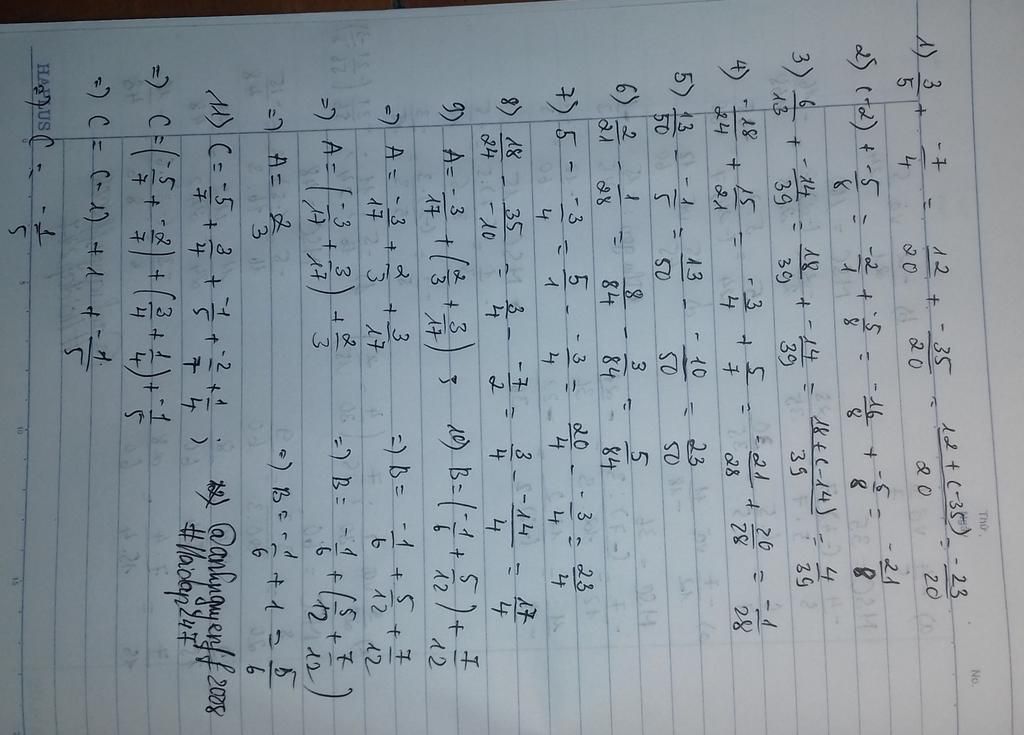 Thứ.
No.
1) 3/5 + -7/4 = 12/20 + -35/20 = 12+(-35)/20 = -23/20
2) (-2) + -5/8 = -2/1 + -5/8 = -16/8 + -5/8 = -21/8
3) 6/13 + -14/39 = 18/39 + -14/39 = 18+(-14)/39 = 4/39
4) -18/24 + 15/21 = -3/4 + 5/7 = -21/28 + 20/28 = -1/28
5) 13/50 - -1/5 = 13/50 - -10/50 = 23/50
6) 2/21 - 1/28 = 8/84 - 3/84 = 5/84
7) 5 - -3/4 = 5/1 - -3/4 = 20/4 - -3/4 = 23/4
8) 18/24 - 35/-10 = 3/4 - -7/2 = 3/4 - -14/4 = 17/4
9) A = -3/17 + (2/3 + 3/17) ; 10) B = (-1/6 + 5/12) + 7/12
=) A = -3/17 + 2/3 + 3/17 =) B = -1/6 + 5/12 + 7/12
=) A = (-3/17 + 3/17) + 2/3 =) B = -1/6 + (5/12 + 7/12)
=) A = 2/3 =) B = -1/6 + 1 = 5/6
11) C = -5/7 + 3/4 + -1/5 + -2/7 + 1/4 @anhnguyenff2008
=) C = (-5/7 + -2/7) + (3/4 + 1/4) + -1/5 #Hacap247
=) C = (-1) + 1 + -1/5
=) C = -1/5